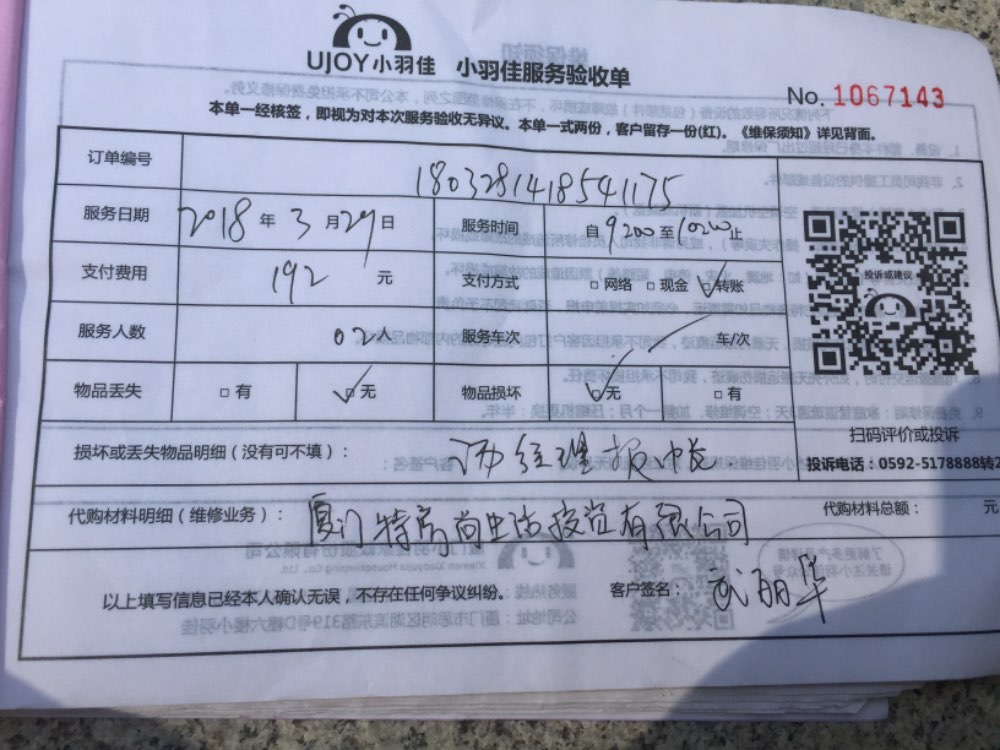 UJOY小羽佳 小羽佳服务验收单
No. 1067143
本单一经核签，即视为对本次服务验收无异议。本单一式两份，客户留存一份(红)。《维保须知》详见背面。
订单编号 180328141854 1175
服务日期 2018 年 3 月 29 日 服务时间 自 9:00 至 10:00 止
支付费用 192 元 支付方式 □ 网络 □ 现金 □ 转账
服务人数 02人 服务车次 车/次
物品丢失 □ 有 □ 无 物品损坏 □ 无 □ 有
投诉或建议
扫码评价或投诉
投诉电话：0592-5178888转2
损坏或丢失物品明细（没有可不填）： 经理报
代购材料明细（维修业务）： 厦门特房尚生活投资有限公司 代购材料总额： 元
以上填写信息已经本人确认无误，不存在任何争议纠纷。 客户签名： 武丽华